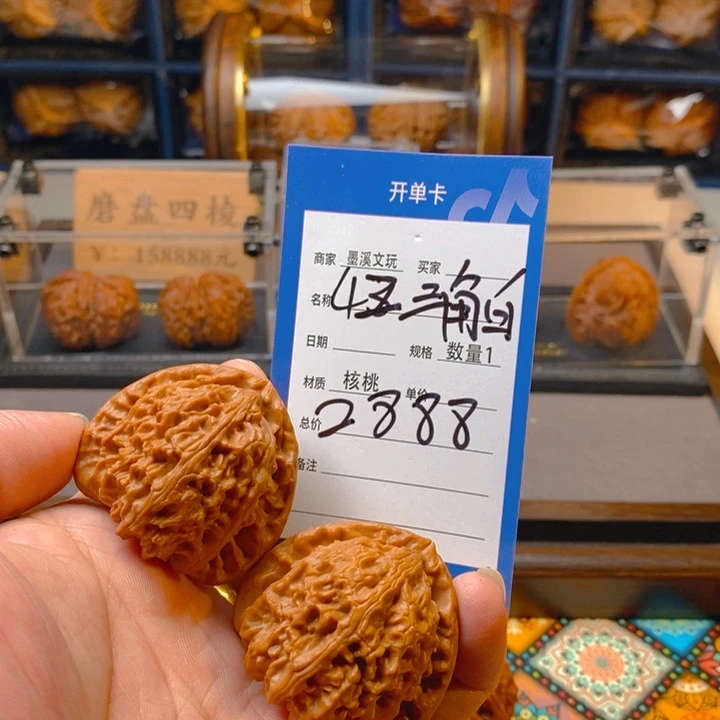 磨盘四棱
¥: 158888元
开单卡
商家 墨溪文玩 买家
名称 42 三角白
日期 规格 数量1
材质 核桃 单价
总价 2888
备注